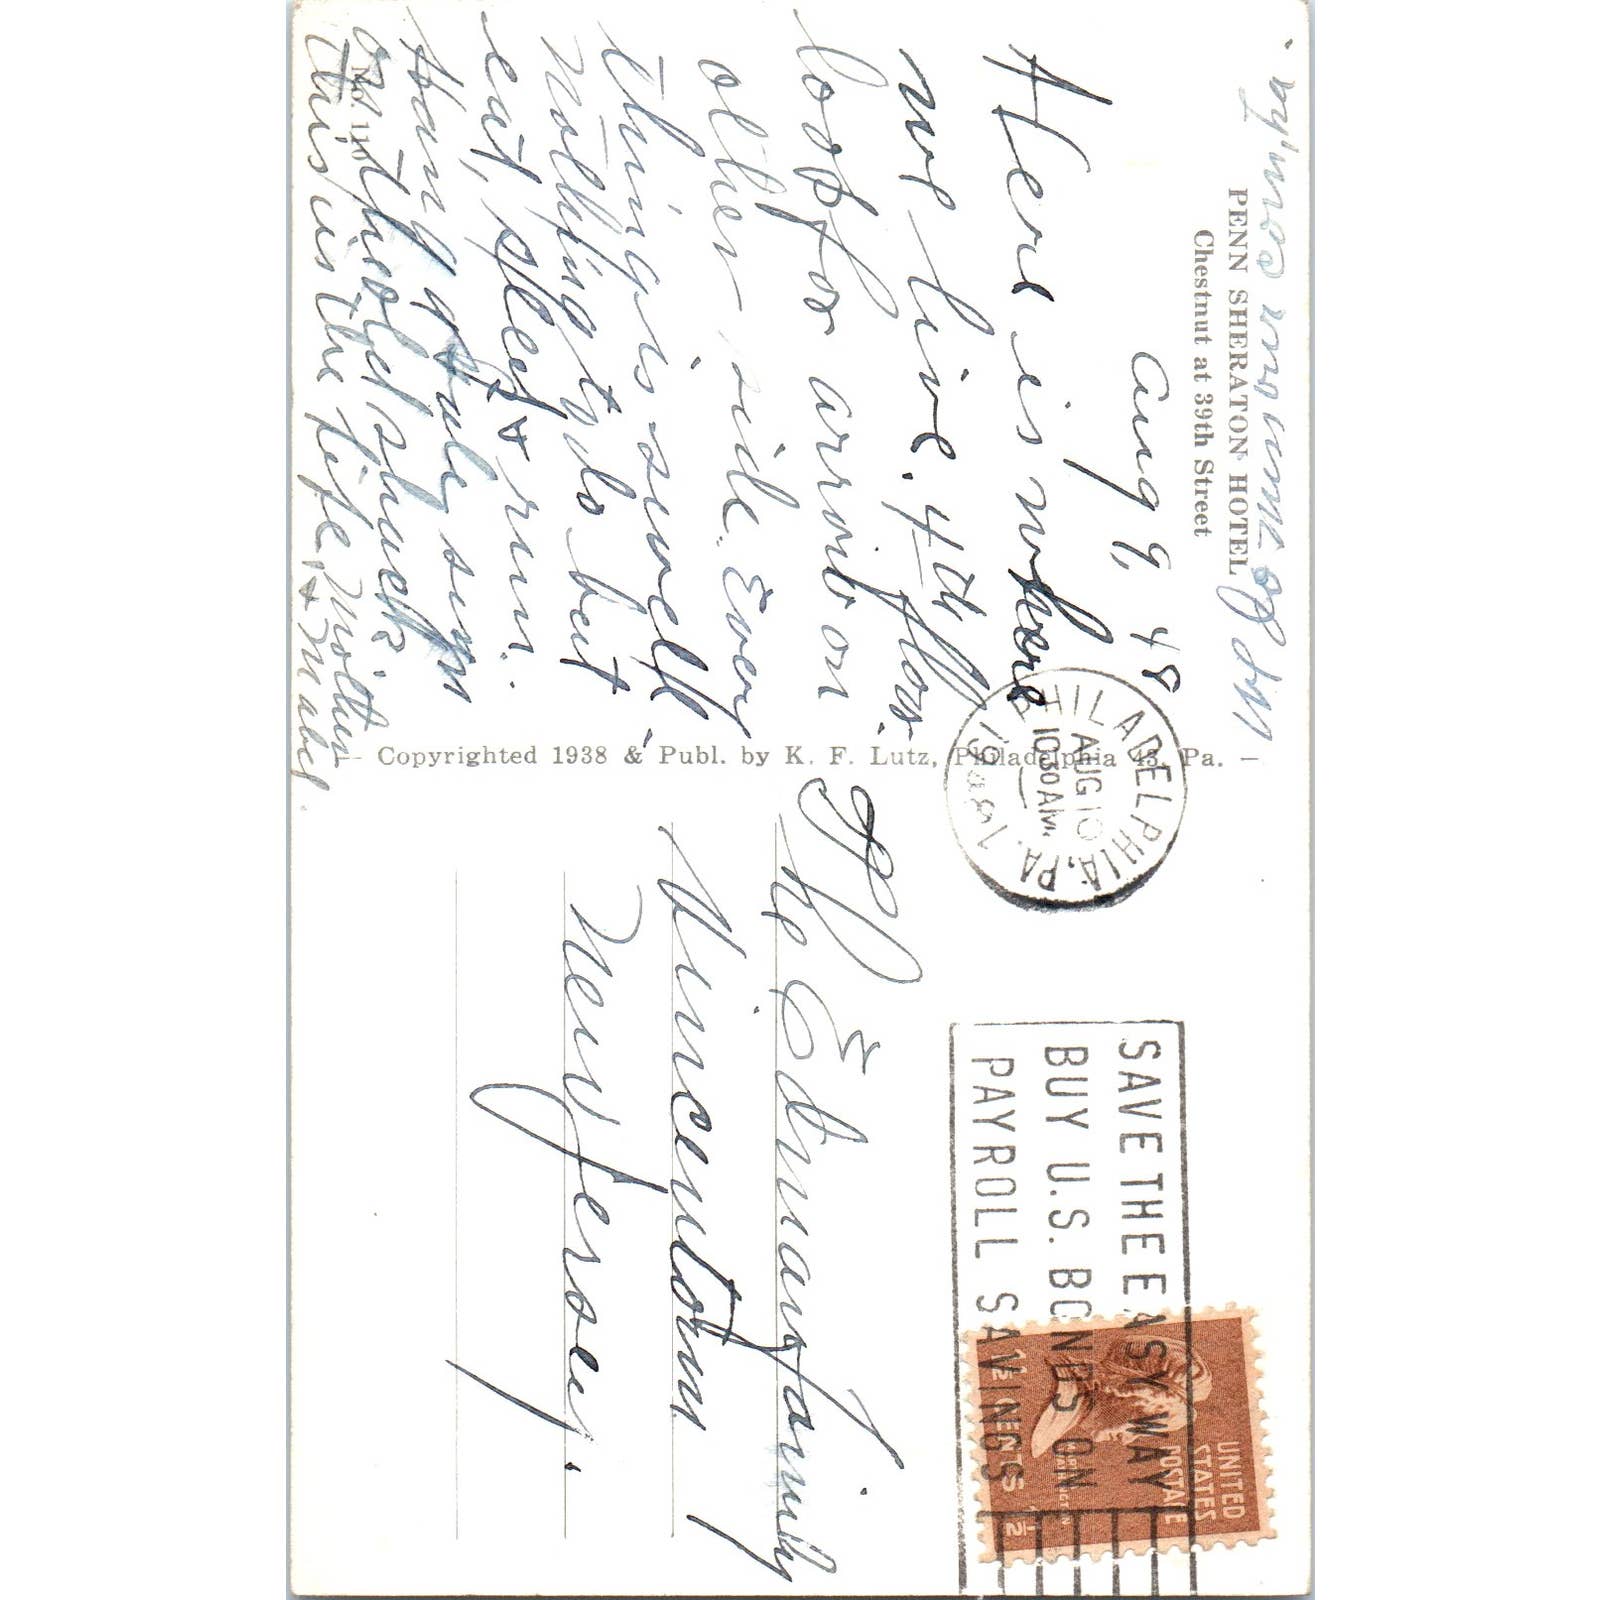 PENN SHERATON HOTEL
Chestnut at 39th Street
Aug 9, 48
Here is where
we live. 4th floor
look for arrow on
other side. Every
thing is swell -
nothing to do but
eat, sleep & run.
Hang
or the old shack
this is the life. Mother
& Mabel
No. 110
— Copyrighted 1938 & Publ. by K. F. Lutz, Philadelphia 43, Pa. —
PHILADELPHIA, PA.
AUG 10
10 30 AM
1948
SAVE THE EASY WAY
BUY U.S. BONDS ON
PAYROLL SAVINGS
UNITED
STATES
POSTAGE
1½ CENTS 1½
The Edmans family
Vincentown
New Jersey.